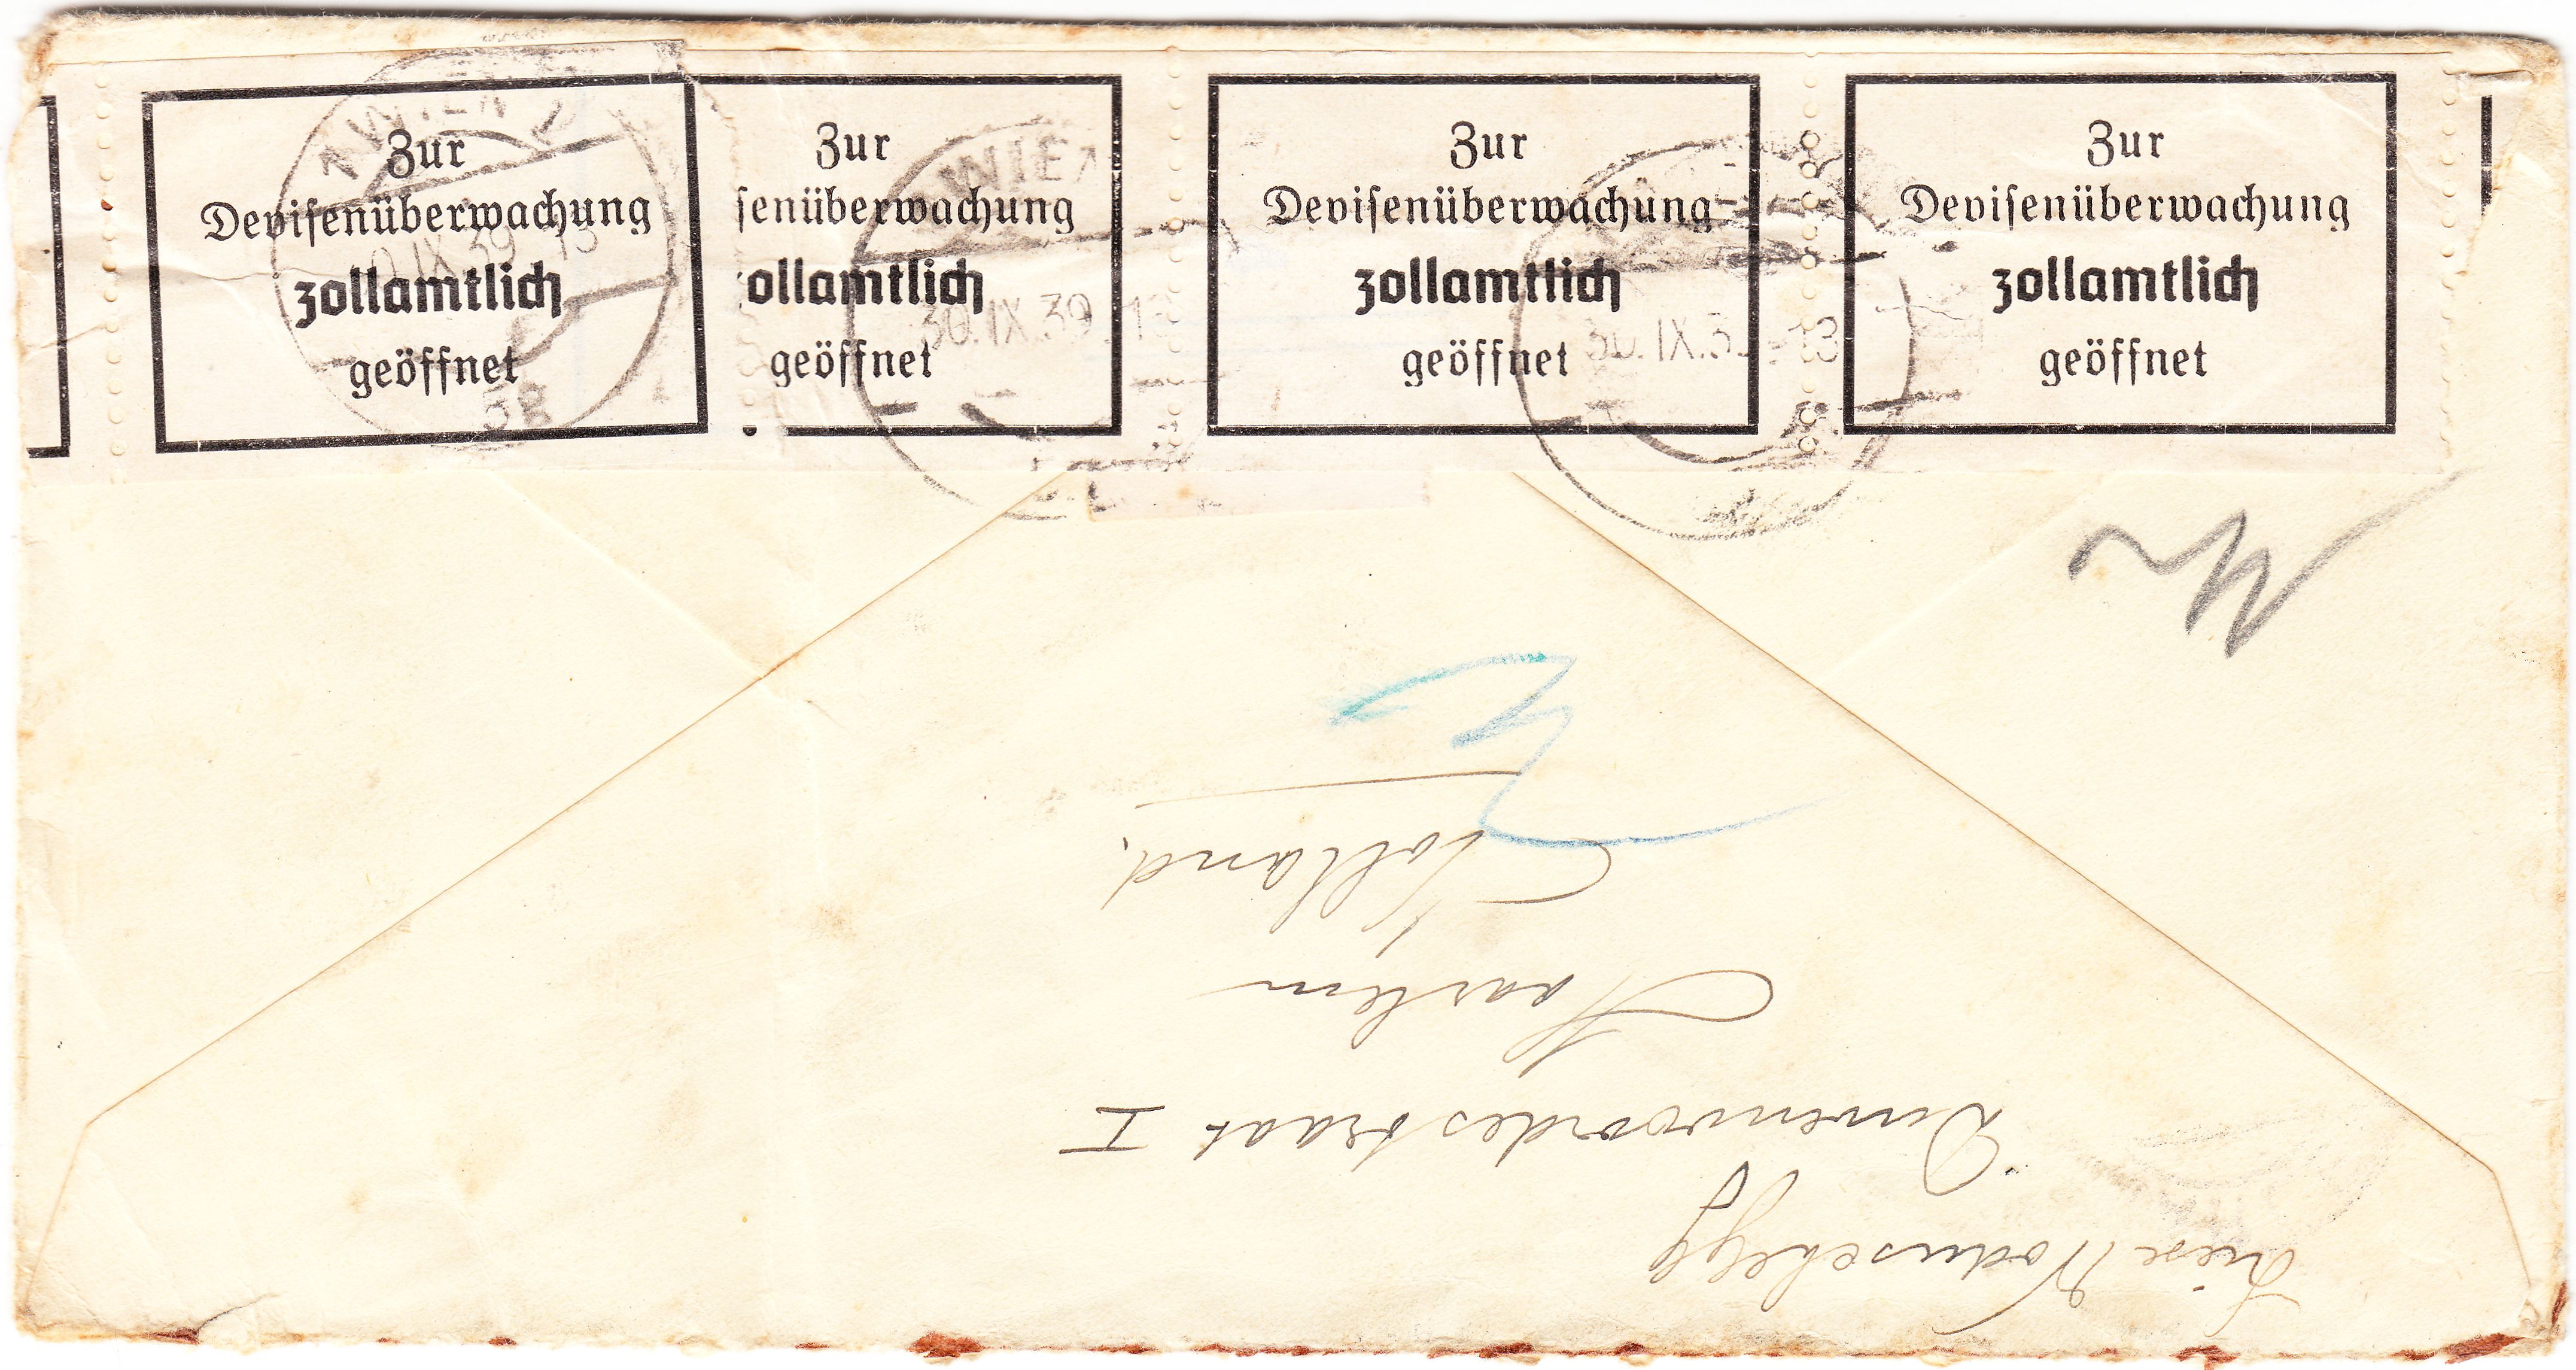 Zur
Devisenüberwachung
zollamtlich
geöffnet
Zur
senüberwachung
ollamtlich
geöffnet
Zur
Devisenüberwachung
zollamtlich
geöffnet
Zur
Devisenüberwachung
zollamtlich
geöffnet
WIEN
0.IX.39
WIE
30.IX.39
13
Haarlem
Holland.